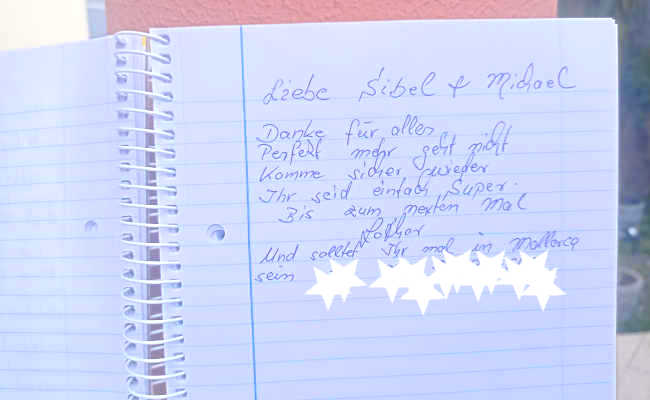 Liebe Sibel & Michael
Danke für alles
Perfekt mehr geht nicht
Komme sicher wieder
Ihr seid einfach Super.
Bis zum nexten mal
Lothar
Und solltet Ihr mal in Mallorca
sein